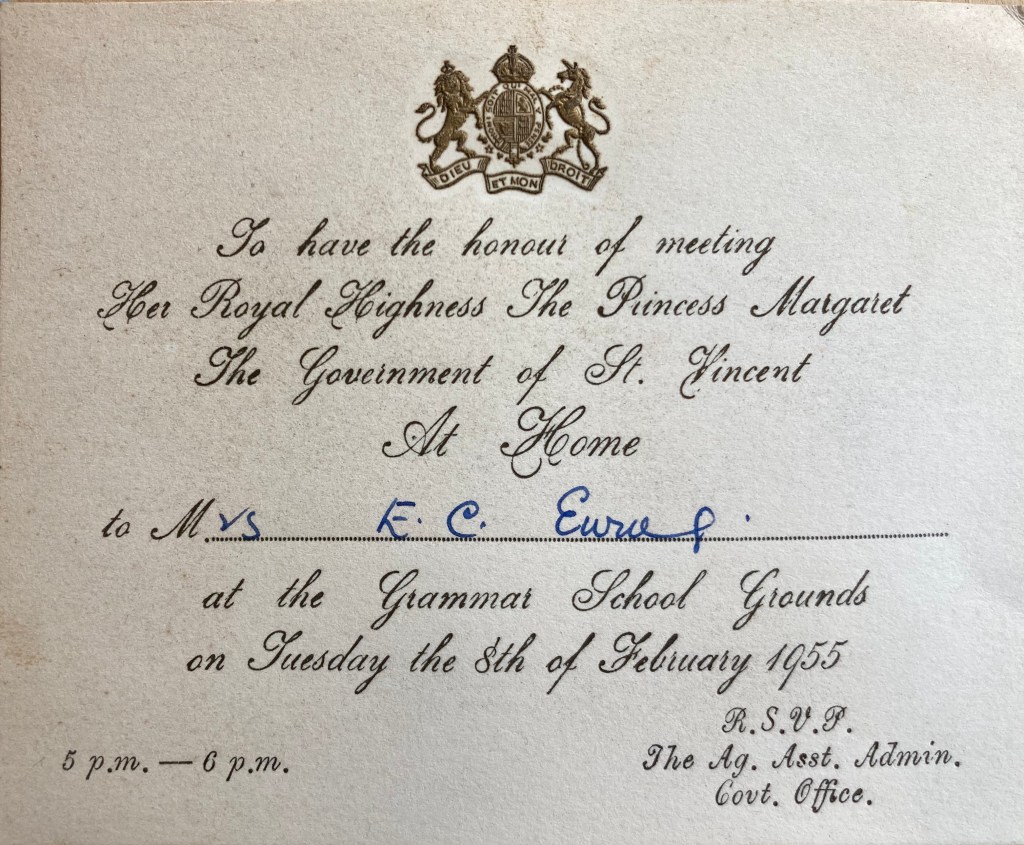 HONI SOIT QUI MAL Y PENSE
DIEU ET MON DROIT
To have the honour of meeting
Her Royal Highness The Princess Margaret
The Government of St. Vincent
At Home
to Mrs E. C.
at the Grammar School Grounds
on Tuesday the 8th of February 1955
R.S.V.P.
5 p.m. — 6 p.m. The Ag. Asst. Admin.
Govt. Office.